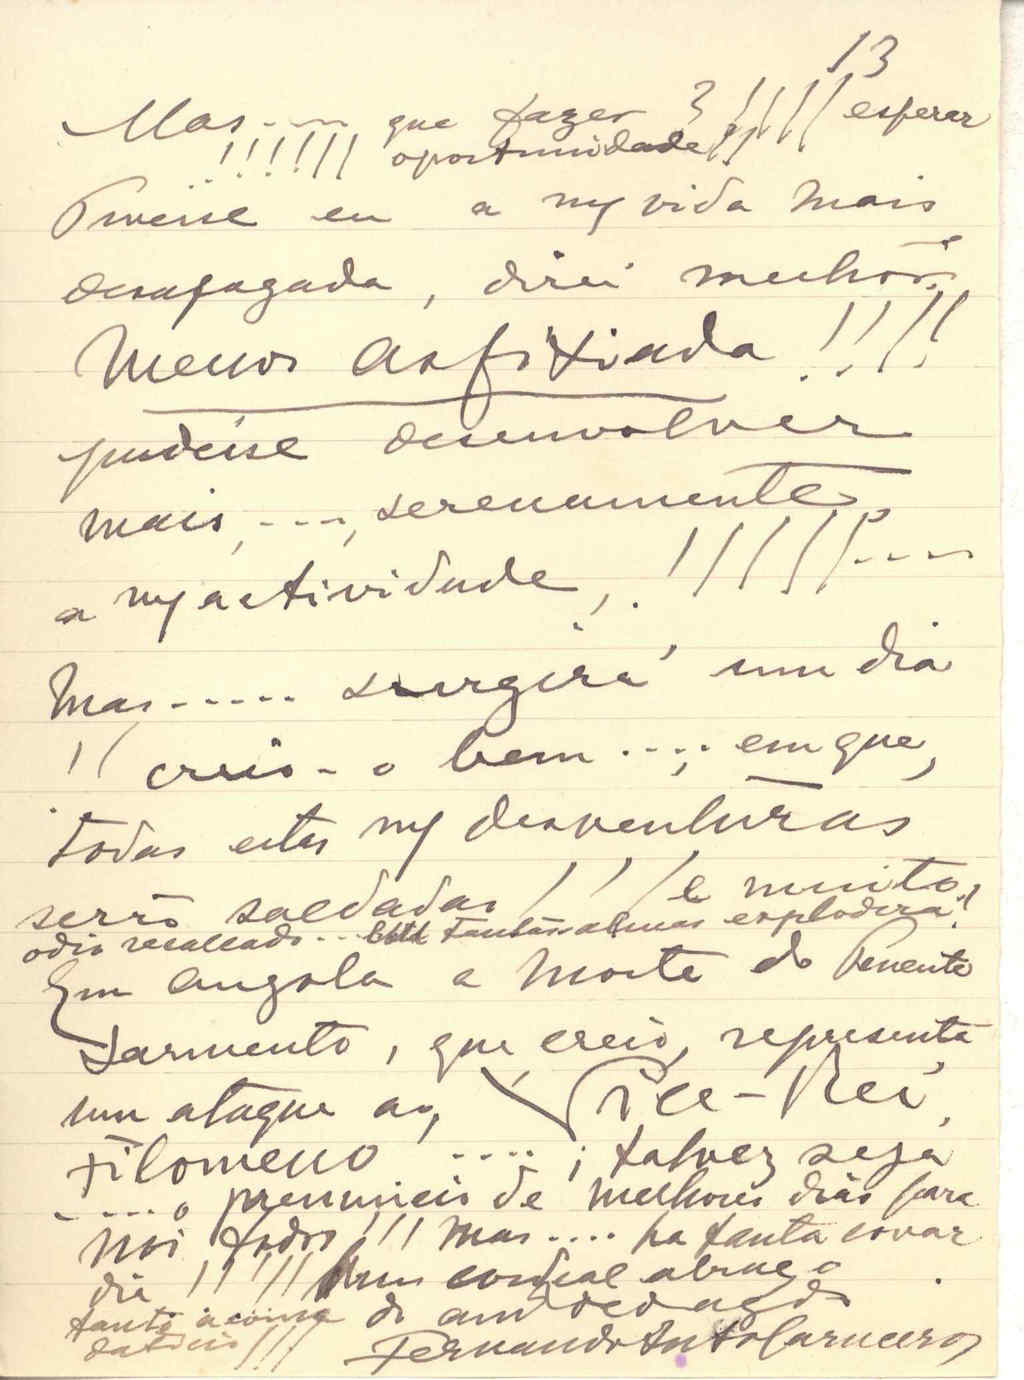 13
Mas.... que fazer ? !!!!! esperar
!!!!!! oportunidade!!
Tivesse eu a m/ vida mais
desafogada, direi melhor,
Menos Asfixiada !!!!
pudesse desenvolver
mais, ...., serenamente
a m/ actividade, !!!!!!....
Mas..... surgirá um dia
!! creio-o bem ....; em que,
todas estas m/ desventuras
serão saldadas !!! e muito
odio recalcado... tantas almas explodirá!
Em Angola a morte do Tenente
Sarmento, que creio, representa
um ataque ao, Vice-Rei,
Filomeno ....; talvez seja
..... o prenuncio de melhores dias para
nós todos !!! Mas.... ha tanta covar
dia !!!!! Um cordial abraço
do am/
tanto
Fernando